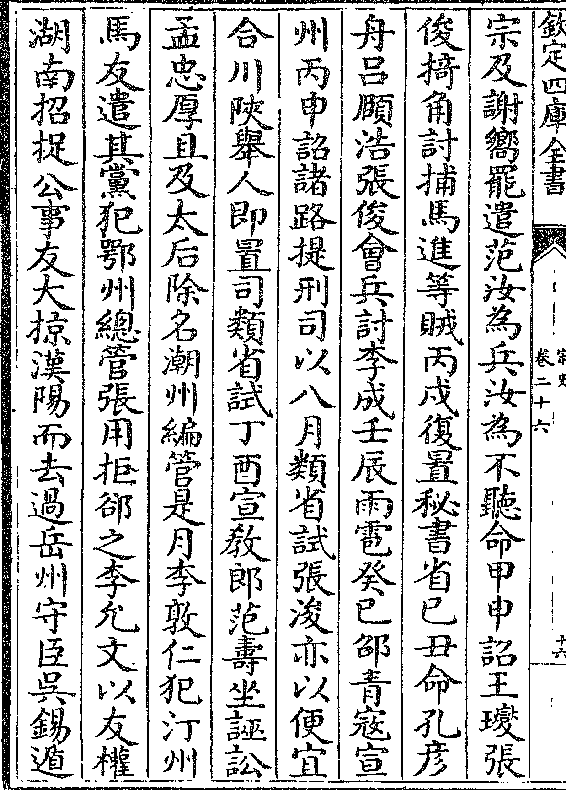 欽定四庫全書
宋史
卷二十六
十六
宗及謝嚮罷遣范汝為兵汝為不聽命甲申詔王𤫉張
俊掎角討捕馬進等賊丙戍復置秘書省已丑命孔彦
舟吕頤浩張俊會兵討李成壬辰雨雹癸巳邵青寇宣
州丙申詔諸路提刑司以八月類省試張浚亦以便宜
合川陜舉人即置司類省試丁酉宣敎郎范燾坐誣訟
孟忠厚且及太后除名潮州編管是月李敦仁犯汀州
馬友遣其黨犯鄂州總管張用拒郤之李允文以友權
湖南招捉公事友大掠漢陽而去過岳州守臣吳錫遁